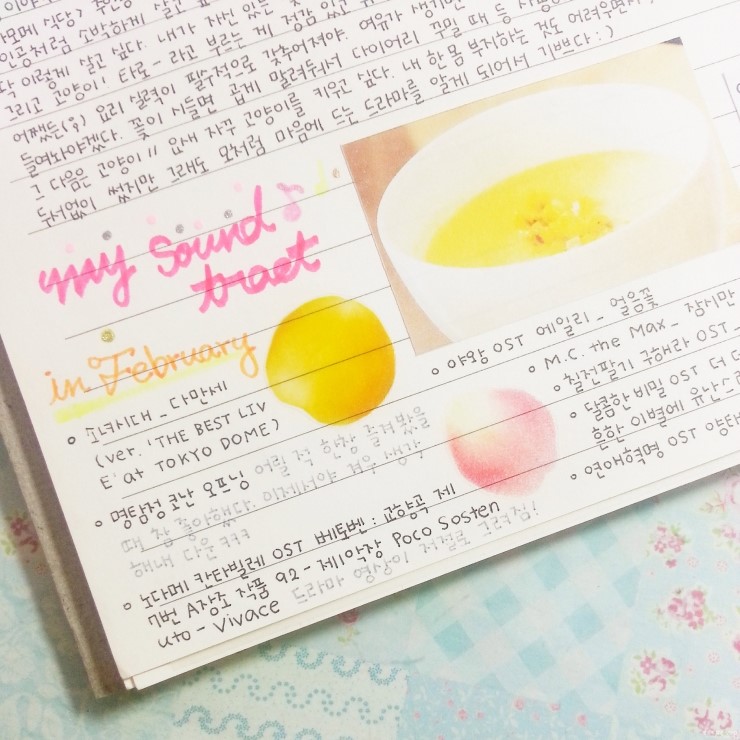 이렇게 살고 싶다. 내가 자신 있는
그리고 고양이! 타로 - 라고 부르는 게 정감 있고
어쨌든(?) 요리 실력이 필수적으로 갖추어져야. 여유가 생기면
들여놔야겠다. 꽃이 시들면 곱게 말려둬서 다이어리 꾸밀 때 등
그 다음은 고양이// 요새 자꾸 고양이를 키우고 싶다. 내 한 몸 부지하는 것도 어려우면서
두서없이 썼지만 그래도 모처럼 마음에 드는 드라마를 알게 되어서 기쁘다:)
my sound
tract
in February
◦ 소녀시대 _ 다만세
(ver. 'THE BEST LIV
E' at TOKYO DOME)
◦ 명탐정 코난 오프닝 어릴 적 한창 즐겨봤을
때 참 좋아했다. 이제서야 겨우 생각
해내 다운 ㅋㅋㅋ
◦ 노다메 칸타빌레 OST 베토벤 : 교향곡 제
7번 A장조 작품 92 - 제1악장 Poco Sosten
uto - Vivace 드라마 영상이 저절로 그려짐!
◦ 야왕 OST 에일리 _ 얼음꽃
◦ M.C. the Max _ 잠시만
◦ 칠전팔기 구해라 OST _
◦ 달콤한 비밀 OST 더 더
흔한 이별에 유난스러
◦ 연애혁명 OST 양태